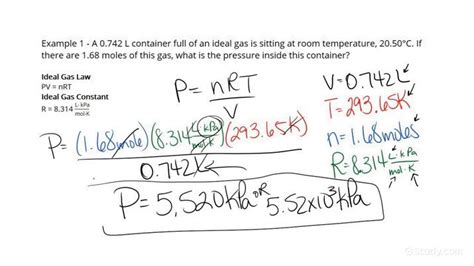 Example 1 - A 0.742 L container full of an ideal gas is sitting at room temperature, 20.50°C. If
there are 1.68 moles of this gas, what is the pressure inside this container?
Ideal Gas Law
PV = nRT
Ideal Gas Constant
R = 8.314 L·kPa/mol·K
P = nRT/V
V = 0.742L
T = 293.65K
n = 1.68moles
R = 8.314 L·kPa/mol·K
P = (1.68mole)(8.314 L·kPa/mol·K)(293.65K)
0.742K
P = 5,520kPa OR 5.52x10³kPa
Study.com